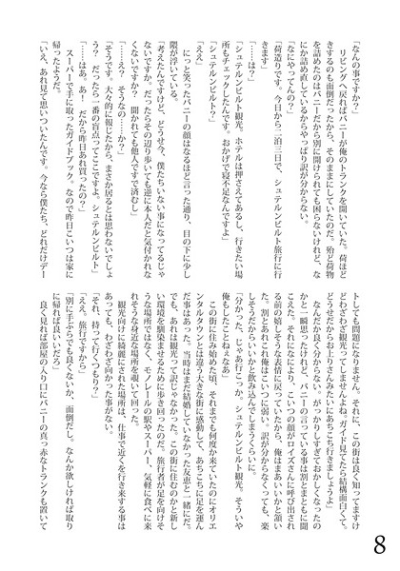 「なんの事ですか？」
　リビングへ戻ればバニーが俺のトランクを開いていた。荷ほど
きするのも面倒だったから、そのままにしていたのだ。殆ど荷物
を詰めたのはバニーだから別に開けられても困らないけれど、な
にか詰め直しているからやっぱり訳が分からない。
「なにやってんの？」
「荷造りです。今日から二泊三日で、シュテルンビルト旅行に行
きます」
「……は？」
「シュテルンビルト観光。ホテルは押さえてあるし、行きたい場
所もチェックしたんです。おかげで寝不足なんですよ」
「シュテルンビルト？」
「ええ」
　にっと笑ったバニーの顔はなるほど言った通り、目の下に少し
隈が浮いている。
「考えたんですけど、どうせ今、僕たちいない事になってるじゃ
ないですか。だったらその辺り歩いても逆に本人だと気付かれな
くないですか？　聞かれても他人ですで済むし」
「……え？　そうなの…か？」
「そうです。大々的に報じたから、まさか居るとは思わないでしょ
う？　だったら一番の盲点ってここですよ、シュテルンビルト」
「……はあ。あ！　だから昨日あれ買ったの？」
　スーパーで手に取ったガイドブック。なので昨日こいつは家に
帰ったようだ。
「いえ、あれ見て思いついたんです。今なら僕たち、どれだけデー
トしても問題になりません。それに、この街は良く知ってますけ
どわざわざ観光ってしませんよね。ガイド見てたら結構面白くて。
どうせだからお上りさんみたいにあちこち行きましょうよ」
　なんだか良く分からない。がっかりしすぎておかしくなったの
かと一瞬思ったけれど、バニーの言っている事は割とまともに聞
こえた。それになにより、こいつの顔がロイズさんに呼び出され
る前の嬉しそうな表情に戻っていたから、俺はまあいいかと頷い
た。割とあれこれ俺はこいつに弱い。訳が分からなくっても、楽
しそうだからいいかと飲み込んでしまうくらいに。
「分かった。じゃあ行こっか、シュテルンビルト観光。そういや
俺もしたことねぇなあ」
　この街に住み始めた頃、それまでも何度か来ていたのにオリエ
ンタルタウンとは違う大きな街に感動して、あちこちに足を運ん
だ事はあった。当時はまだ結婚していなかった友恵と一緒にだ。
でも、あれは観光って訳じゃなかった。この街に住むのかと新し
い環境を馴染ませるために歩き回ったのだ。旅行者が足を向けそ
うな場所ではなく、モノレールの駅やスーパー、気軽に食べに来
れそうな身近な場所を覗いて回った。
　観光向けに綺麗にされた場所は、仕事で近くを行き来する事は
あっても、わざわざ向かった事がない。
「それ、持って行くつもり？」
「ええ、旅行ですから」
「別に手ぶらでも良くないか、面倒だし。なんか欲しければ取り
に帰れば良いいだろ」
　良く見れば部屋の入り口にバニーの真っ赤なトランクも置いて
8